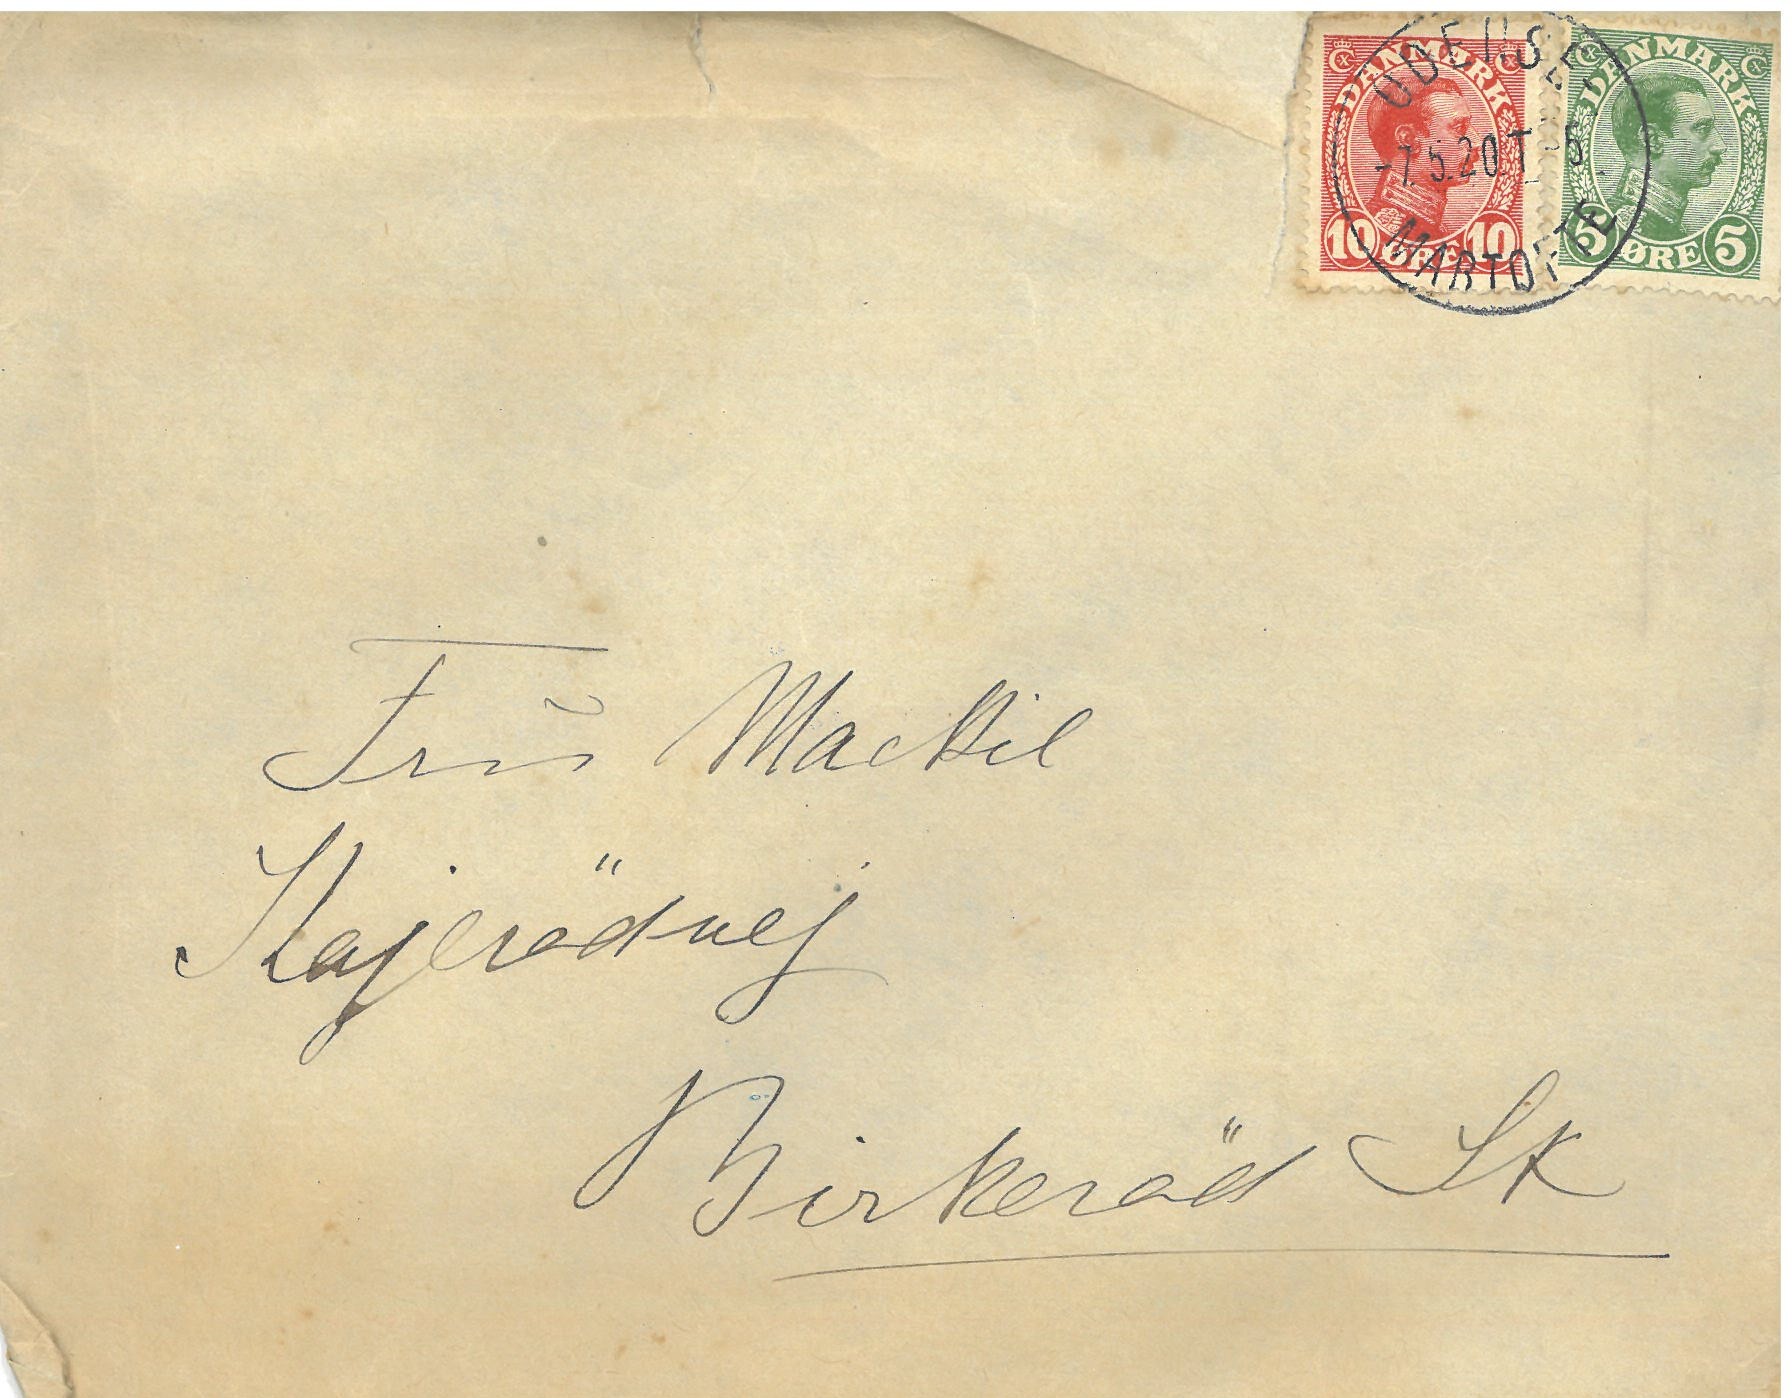 DANMARK
10 ØRE 10
DANMARK
5 ØRE 5
ODENSE
-7.5.20.T
MARTOFTE
Frŭ Mackie
Kajerödvej
Birkeröd St